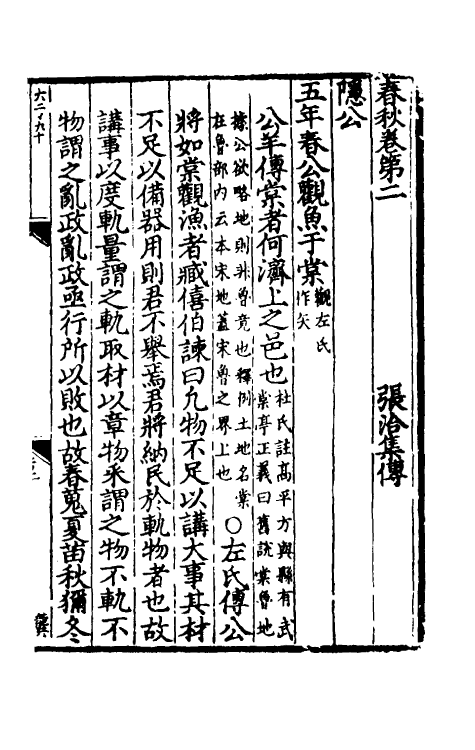 春秋卷第二 張洽集傳
隱公
五年春公觀魚于棠觀左氏作矢
公羊傳棠者何濟上之邑也杜氏註高平方與縣有武棠亭正義曰舊說棠魯地
據公欲略地則非魯竟也釋例土地名棠在魯部內云本宋地蓋宋魯之界上也○左氏傳公
將如棠觀漁者臧僖伯諫曰凡物不足以講大事其材
不足以備器用則君不舉焉君將納民於軌物者也故
講事以度軌量謂之軌取材以章物采謂之物不軌不
物謂之亂政亂政亟行所以敗也故春蒐夏苗秋獮冬